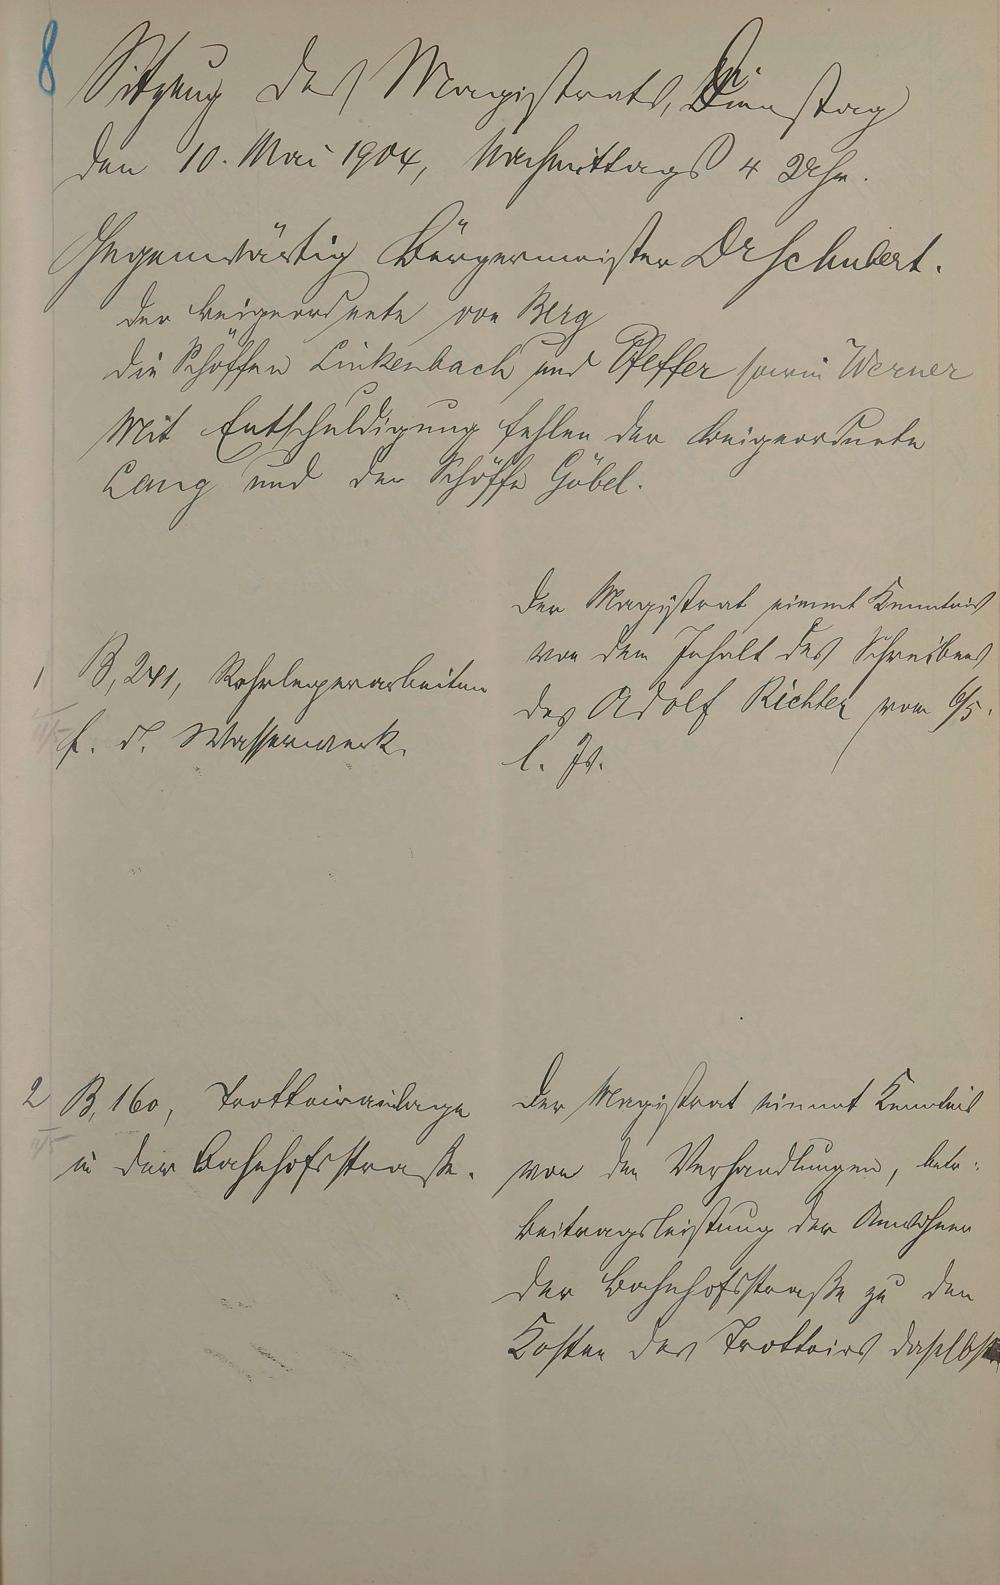 8
Sitzung des Magistrats, Dienstag
den 10. Mai 1904, Nachmittags 4 Uhr.
Gegenwärtig Bürgermeister Dr Schubert.
der Beigeordnete von Berg
die Schöffen Linkenbach und Pfeffer sowie Werner
Mit Entschuldigung fehlen der Beigeordnete
Lang und der Schöffe Göbel.
1 B, 241, Rohrlegerarbeiten
f. d. Wasserwerk.
Der Magistrat nimmt Kenntnis
von dem Inhalt des Schreibens
des Adolf Richter vom 6/5.
l. Js.
2 B, 160, Trottoiranlage
in der Bahnhofsstraße.
Der Magistrat nimmt Kenntnis
von den Verhandlungen, betr.
Beitragsleistung der Anwohner
der Bahnhofsstraße zu den
Kosten des Trottoirs daselbst